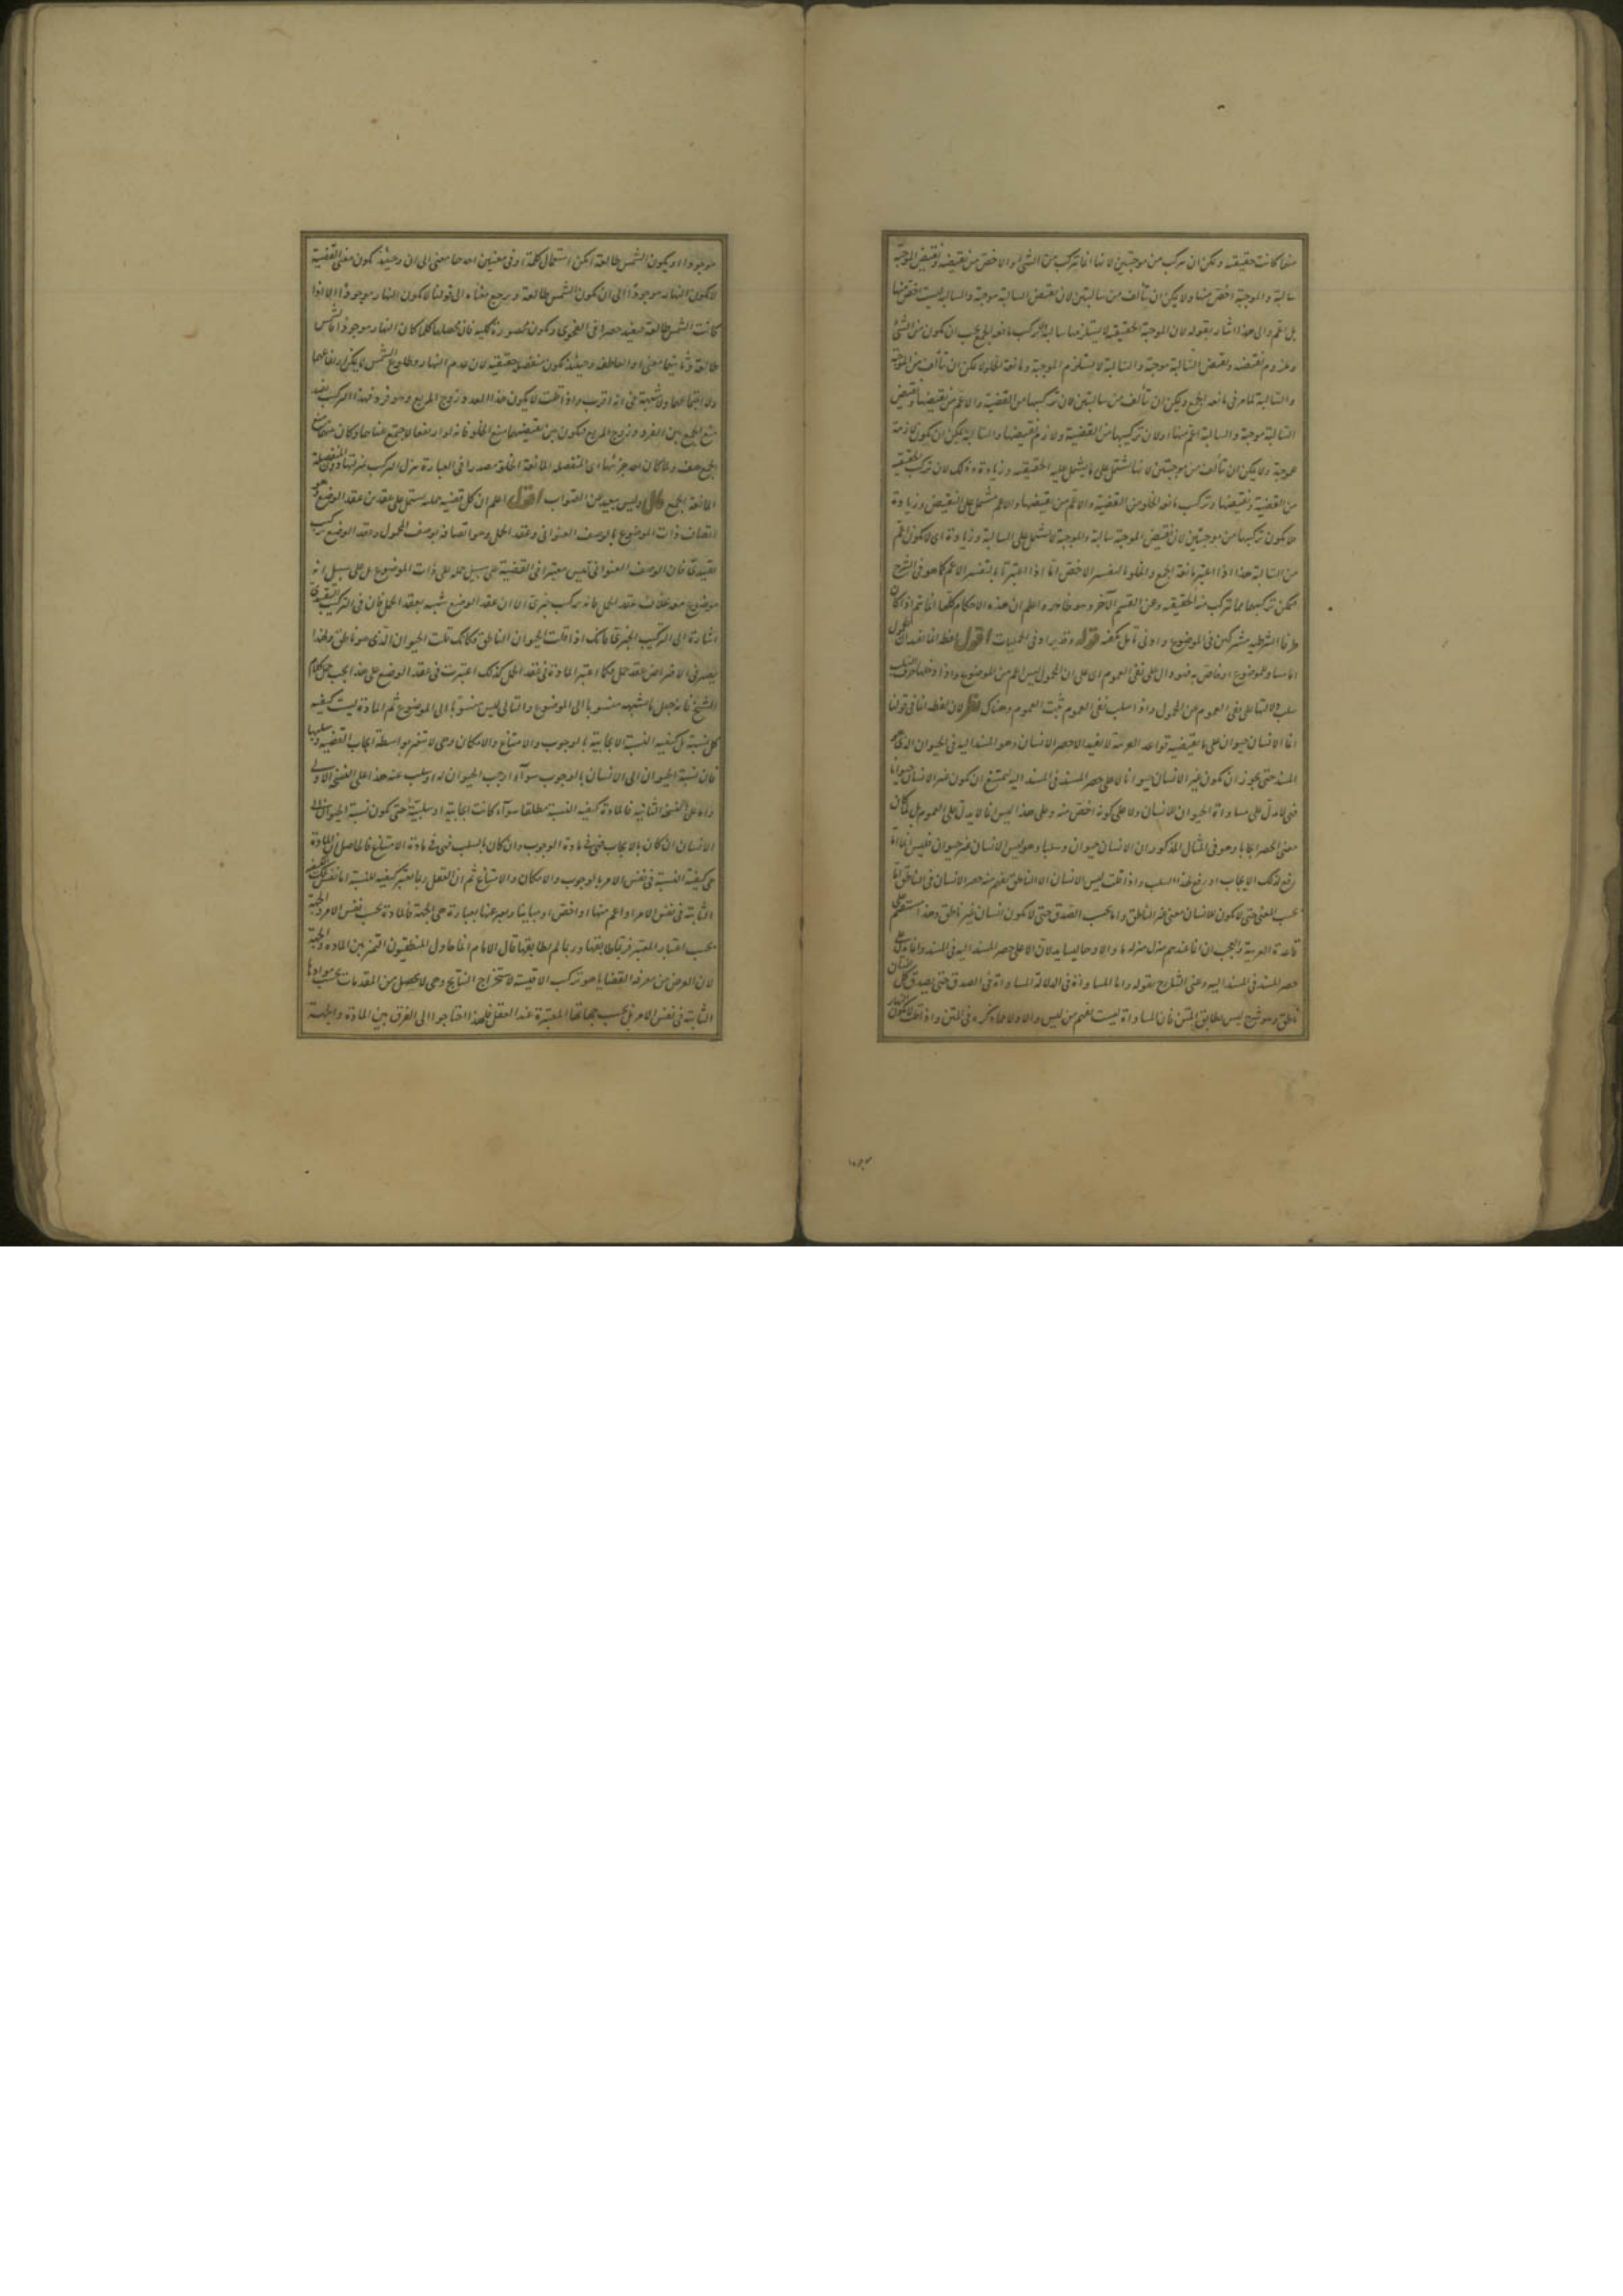 منها كانت حقيقية ويمكن ان يتركب من موجبتين لانها انما تتركب من الشئ والاخص من نقيضه ونقيض الموجبة
سالبة والموجبة اخص منها ولا يمكن ان يتألف من سالبتين لان نقيض السالبة موجبة والسالبة ليست اخص منها
بل اعم والى هذا اشار بقوله لان الموجبة الحقيقية لا يستلزمها سالبة مانعة الجمع يجب ان يكون من الشئ
وملزوم نقيضه ونقيض السالبة موجبة والسالبة لا يستلزم الموجبة ومانعة الخلو لا يمكن ان يتألف من الموجبة
والسالبة لما مر فى مانعة الجمع ويمكن ان يتألف من سالبتين لان تركيبها من القضية والاعم من نقيضها ونقيض
السالبة موجبة والسالبة اعم منها او لان تركيبها من القضية ولازم نقيضها والسالبة يمكن ان يكون لازمة
لموجبة ولا يمكن ان يتألف من موجبتين لانها يشتمل على ما يشتمل عليه الحقيقية وزيادة وذلك لان تركب الحقيقية
من القضية ونقيضها وتركب مانعة الخلو من القضية والاعم من نقيضها والاعم مشتمل على النقيض وزيادة
فلا يكون تركيبها من موجبتين لان نقيض الموجبة سالبة والموجبة لا يشتمل على السالبة وزيادة اى لا يكون اعم
من السالبة هذا اذا اعتبر مانعة الجمع والخلو بالتفسير الاخص اما اذا اعتبرتا بالتفسير الاعم كما هو فى الشرح
يمكن تركيبهما مما تتركب منه الحقيقية وعن القسم الآخر وهو ظاهر واعلم ان هذه الاحكام كلها انما تتم اذا كان
طرفا الشرطية مشتركين فى الموضوع وادنى تأمل يكفيه قوله وقد يزاد فى الحمليات اقول لفظ انما يفيد ان المحمول
اما مساو للموضوع او خاص به فهو دال على نفى العموم اى على ان المحمول ليس اعم من الموضوع واذا دخلها حرف السلب
سلب دلالتها على نفى العموم عن المحمول واذا سلب نفى العموم ثبت العموم وهناك نظر لان لفظة انما فى قولنا
انما الانسان حيوان على ما يقتضيه قواعد العربية لا يفيد الا حصر الانسان وهو المسند اليه فى الحيوان الذى هو
المسند حتى يجوز ان يكون غير الانسان حيوانا لا على حصر المسند فى المسند اليه ليمتنع ان يكون غير الانسان حيوانا
فهى لا تدل على مساواة الحيوان للانسان ولا على كونه اخص منه وعلى هذا ليس انما لا يدل على العموم بل لما كان
معنى الحصر ايجابا وهو فى المثال المذكور ان الانسان حيوان وسلبا وهو ليس الانسان غير حيوان فليس انما اما
رفع لذلك الايجاب او رفع لهذا السلب واذا قلت ليس الانسان الا الناطق يفهم منه حصر الانسان فى الناطق اما
بحسب المعنى حتى لا يكون للانسان معنى غير الناطق واما بحسب الصدق حتى لا يكون انسان غير ناطق وهذا مستقيم على
قاعدة العربية والعجب ان انما عندهم منزل منزلة ما والا وحاليسا يدلان الا على حصر المسند اليه فى المسند وانما يدل على
حصر المسند فى المسند اليه وعنى الشارح بقوله واما المساواة فى الدلالة المساواة فى الصدق حتى يصدق كل انسان
ناطق وهو شرح ليس يطابق المتن فان المساواة ليست يفهم من ليس والا ولا مما ذكره فى المتن واذا قلت لا يكون النهار
موجودا
موجودا او يكون الشمس طالعة امكن استعمال كلمة او فى معنيين احدهما معنى الى ان وحينئذ يكون معنى القضية
لا يكون النهار موجودا الى ان يكون الشمس طالعة ويرجع معناه الى قولنا لا يكون النهار موجودا الا اذا
كانت الشمس طالعة فيفيد حصرا فى الفحوى ويكون محصورة كلية فان محصلها كلما كان النهار موجودا فالشمس
طالعة وثانيهما معنى او العاطفة وحينئذ يكون منفصلة حقيقية لان عدم النهار وطلوع الشمس لا يمكن ارتفاعهما
ولا اجتماعهما ولا شبهة فى انه اقرب واذا قلت لا يكون هذا العدد زوج المربع وهو فرد فهذا التركيب يفيد
منع الجمع بين الفرد وزوج المربع فيكون بين نقيضيهما منع الخلو فانه لو ارتفعا لاجتمع عيناهما وكان بينهما منع
الجمع هف ولما كان احد جزئيها اى المنفصلة المانعة الخلو مصدرا فى العبارة نزل التركيب منزلتها دون المنفصلة
المانعة الجمع قال وليس ببعيد عن الصواب اقول اعلم ان كل قضية حملية يشتمل على عقدين عقد الوضع وهو
اتصاف ذات الموضوع بالوصف العنوانى وعقد الحمل وهو اتصافه بوصف المحمول وعقد الوضع تركيب
تقييدى فان الوصف العنوانى ليس معتبرا فى القضية على سبيل حمله على ذات الموضوع بل على سبيل انه
موضوع معه بخلاف عقد الحمل فانه تركيب خبرى الا ان عقد الوضع شبيه بعقد الحمل فان فى التركيب التقييدى
اشارة الى التركيب الخبرى فانك اذا قلت الحيوان الناطق فكانك قلت الحيوان الذى هو ناطق ولهذا
يصير فى الافتراض عقد حمل فكما اعتبر المادة فى عقد الحمل كذلك اعتبرت فى عقد الوضع على هذا يجب حمل كلام
الشيخ فانه جعل ما يشبهه منسوبا الى الموضوع والتالى ليس منسوبا الى الموضوع ثم المادة ليست كيفية
كل نسبة بل كيفية النسبة الايجابية بالوجوب والامتناع والامكان وهى لا تتغير بواسطة ايجاب القضية وسلبها
فان نسبة الحيوان الى الانسان بالوجوب سواء اوجب الحيوان له او سلب عنه هذا على النسخة الاولى
واما على النسخة الثانية فالمادة كيفية النسبة مطلقا سواء كانت ايجابية او سلبية حتى يكون نسبة الحيوان الى
الانسان ان كان بالايجاب فهى فى مادة الوجوب وان كان بالسلب فهى فى مادة الامتناع فالحاصل ان المادة
هى كيفية النسبة فى نفس الامر بالوجوب والامكان والامتناع ثم ان العقل ربما يعتبر كيفية للنسبة اما نفس تلك الكيفية
الثابتة فى نفس الامر او اعم منها او اخص او مباينا ويعبر عنها بعبارة هى الجهة فالمادة بحسب نفس الامر والجهة
بحسب اعتبار المعتبر فربما طابقتها وربما لم يطابقها قال الامام انما حاول المنطقيون التمييز بين المادة والجهة
لان الغرض من معرفة القضايا هو تركيب الاقيسة لاستخراج النتايج وهى لا يحصل من المقدمات بحسب موادها
الثابتة فى نفس الامر بل بحسب جهاتها المعتبرة عند العقل فلهذا احتاجوا الى الفرق بين المادة والجهة